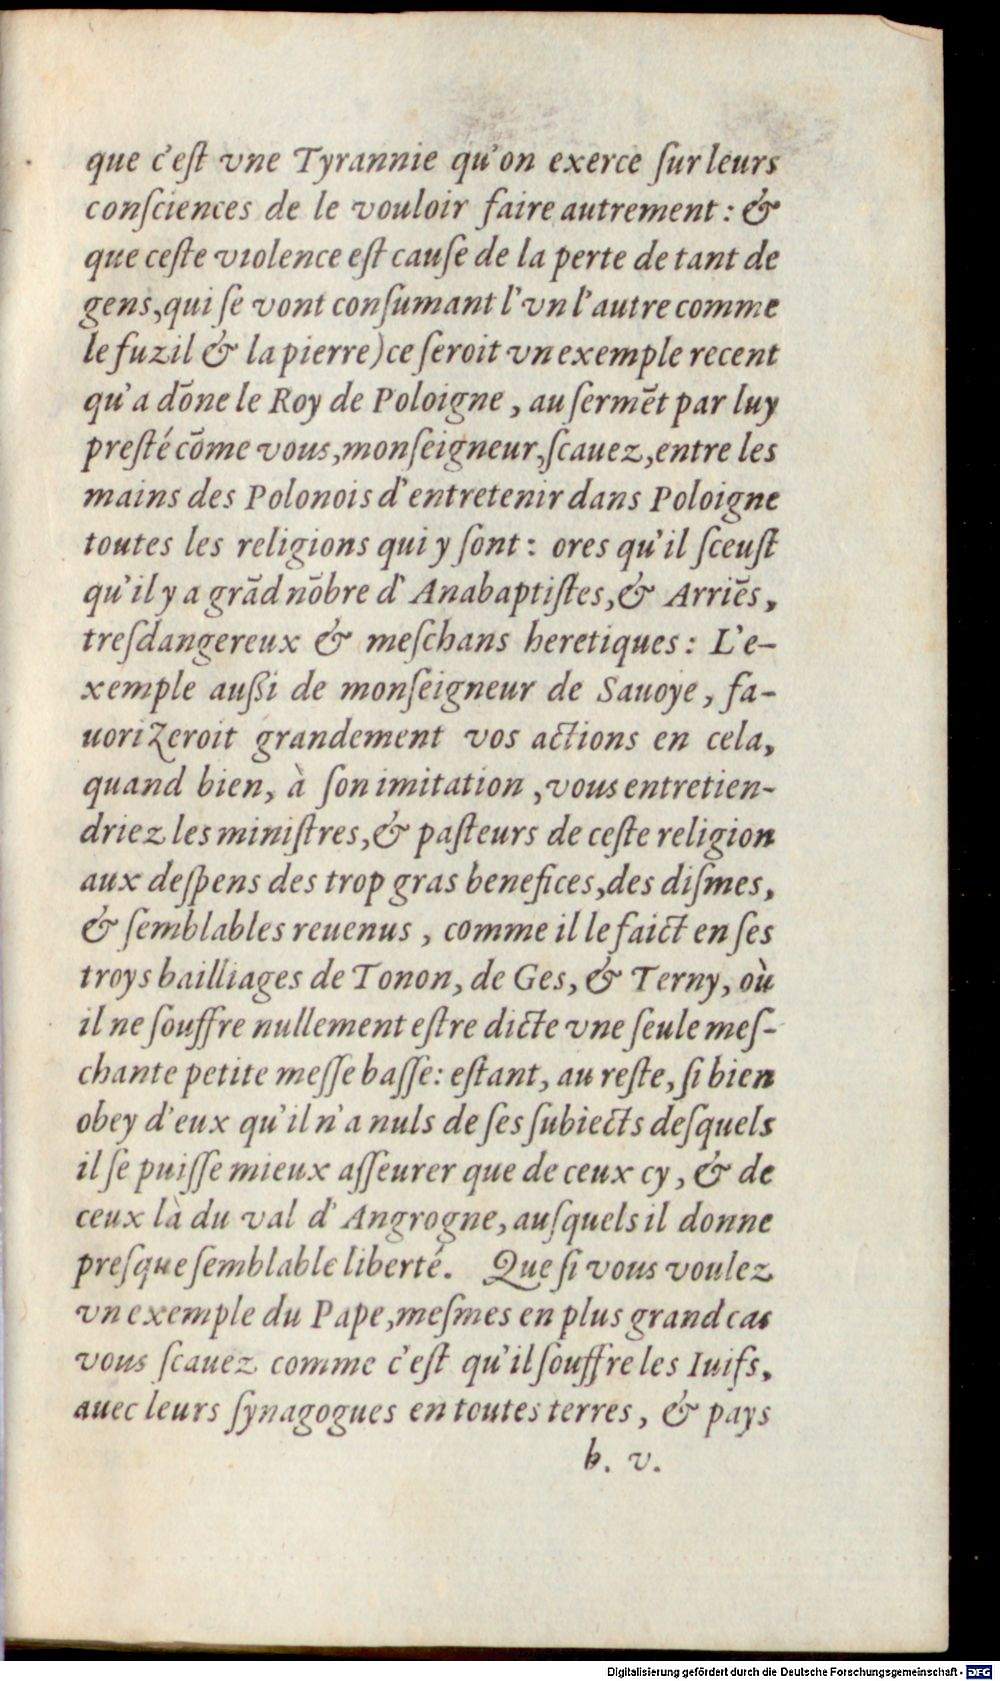 que c'eſt vne Tyrannie qu'on exerce ſur leurs
conſciences de le vouloir faire autrement: &
que ceſte violence eſt cauſe de la perte de tant de
gens, qui ſe vont conſumant l'vn l'autre comme
le fuzil & la pierre) ce ſeroit vn exemple recent
qu'a dōne le Roy de Poloigne, au ſermēt par luy
preſté cōme vous, monſeigneur, ſcauez, entre les
mains des Polonois d'entretenir dans Poloigne
toutes les religions qui y ſont: ores qu'il ſceuſt
qu'il y a grād nōbre d'Anabaptiſtes, & Arriēs,
treſdangereux & meſchans heretiques: L'e-
xemple auſsi de monſeigneur de Sauoye, fa-
uorizeroit grandement vos actions en cela,
quand bien, à ſon imitation, vous entretien-
driez les miniſtres, & paſteurs de ceſte religion
aux deſpens des trop gras benefices, des diſmes,
& ſemblables reuenus, comme il le faict en ſes
troys bailliages de Tonon, de Ges, & Terny, où
il ne ſouffre nullement eſtre dicte vne ſeule meſ-
chante petite meſſe baſſe: eſtant, au reſte, ſi bien
obey d'eux qu'il n'a nuls de ſes ſubiects deſquels
il ſe puiſſe mieux aſſeurer que de ceux cy, & de
ceux là du val d'Angrogne, auſquels il donne
preſque ſemblable liberté. Que ſi vous voulez
vn exemple du Pape, meſmes en plus grand cas
vous ſcauez comme c'eſt qu'il ſouffre les Iuifs,
auec leurs ſynagogues en toutes terres, & pays
b. v.
Digitalisierung gefördert durch die Deutsche Forschungsgemeinschaft - DFG